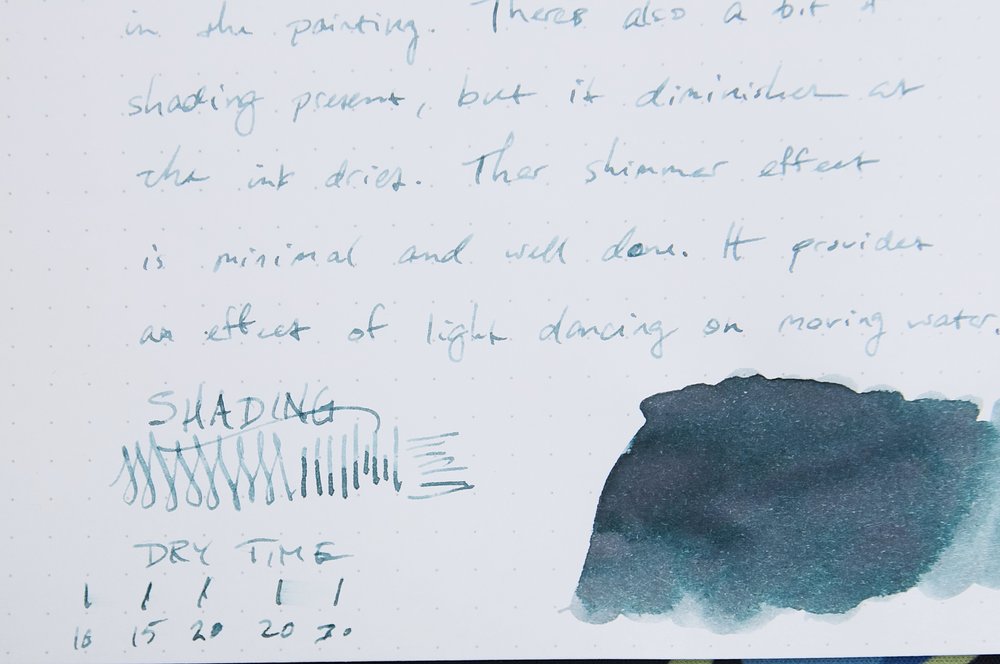 in the painting. Theres also a bit of
shading present, but it diminishes as
the ink dries. Ther shimmer effect
is minimal and well done. It provides
an effect of light dancing on moving water.
SHADING
DRY TIME
10 15 20 20 30